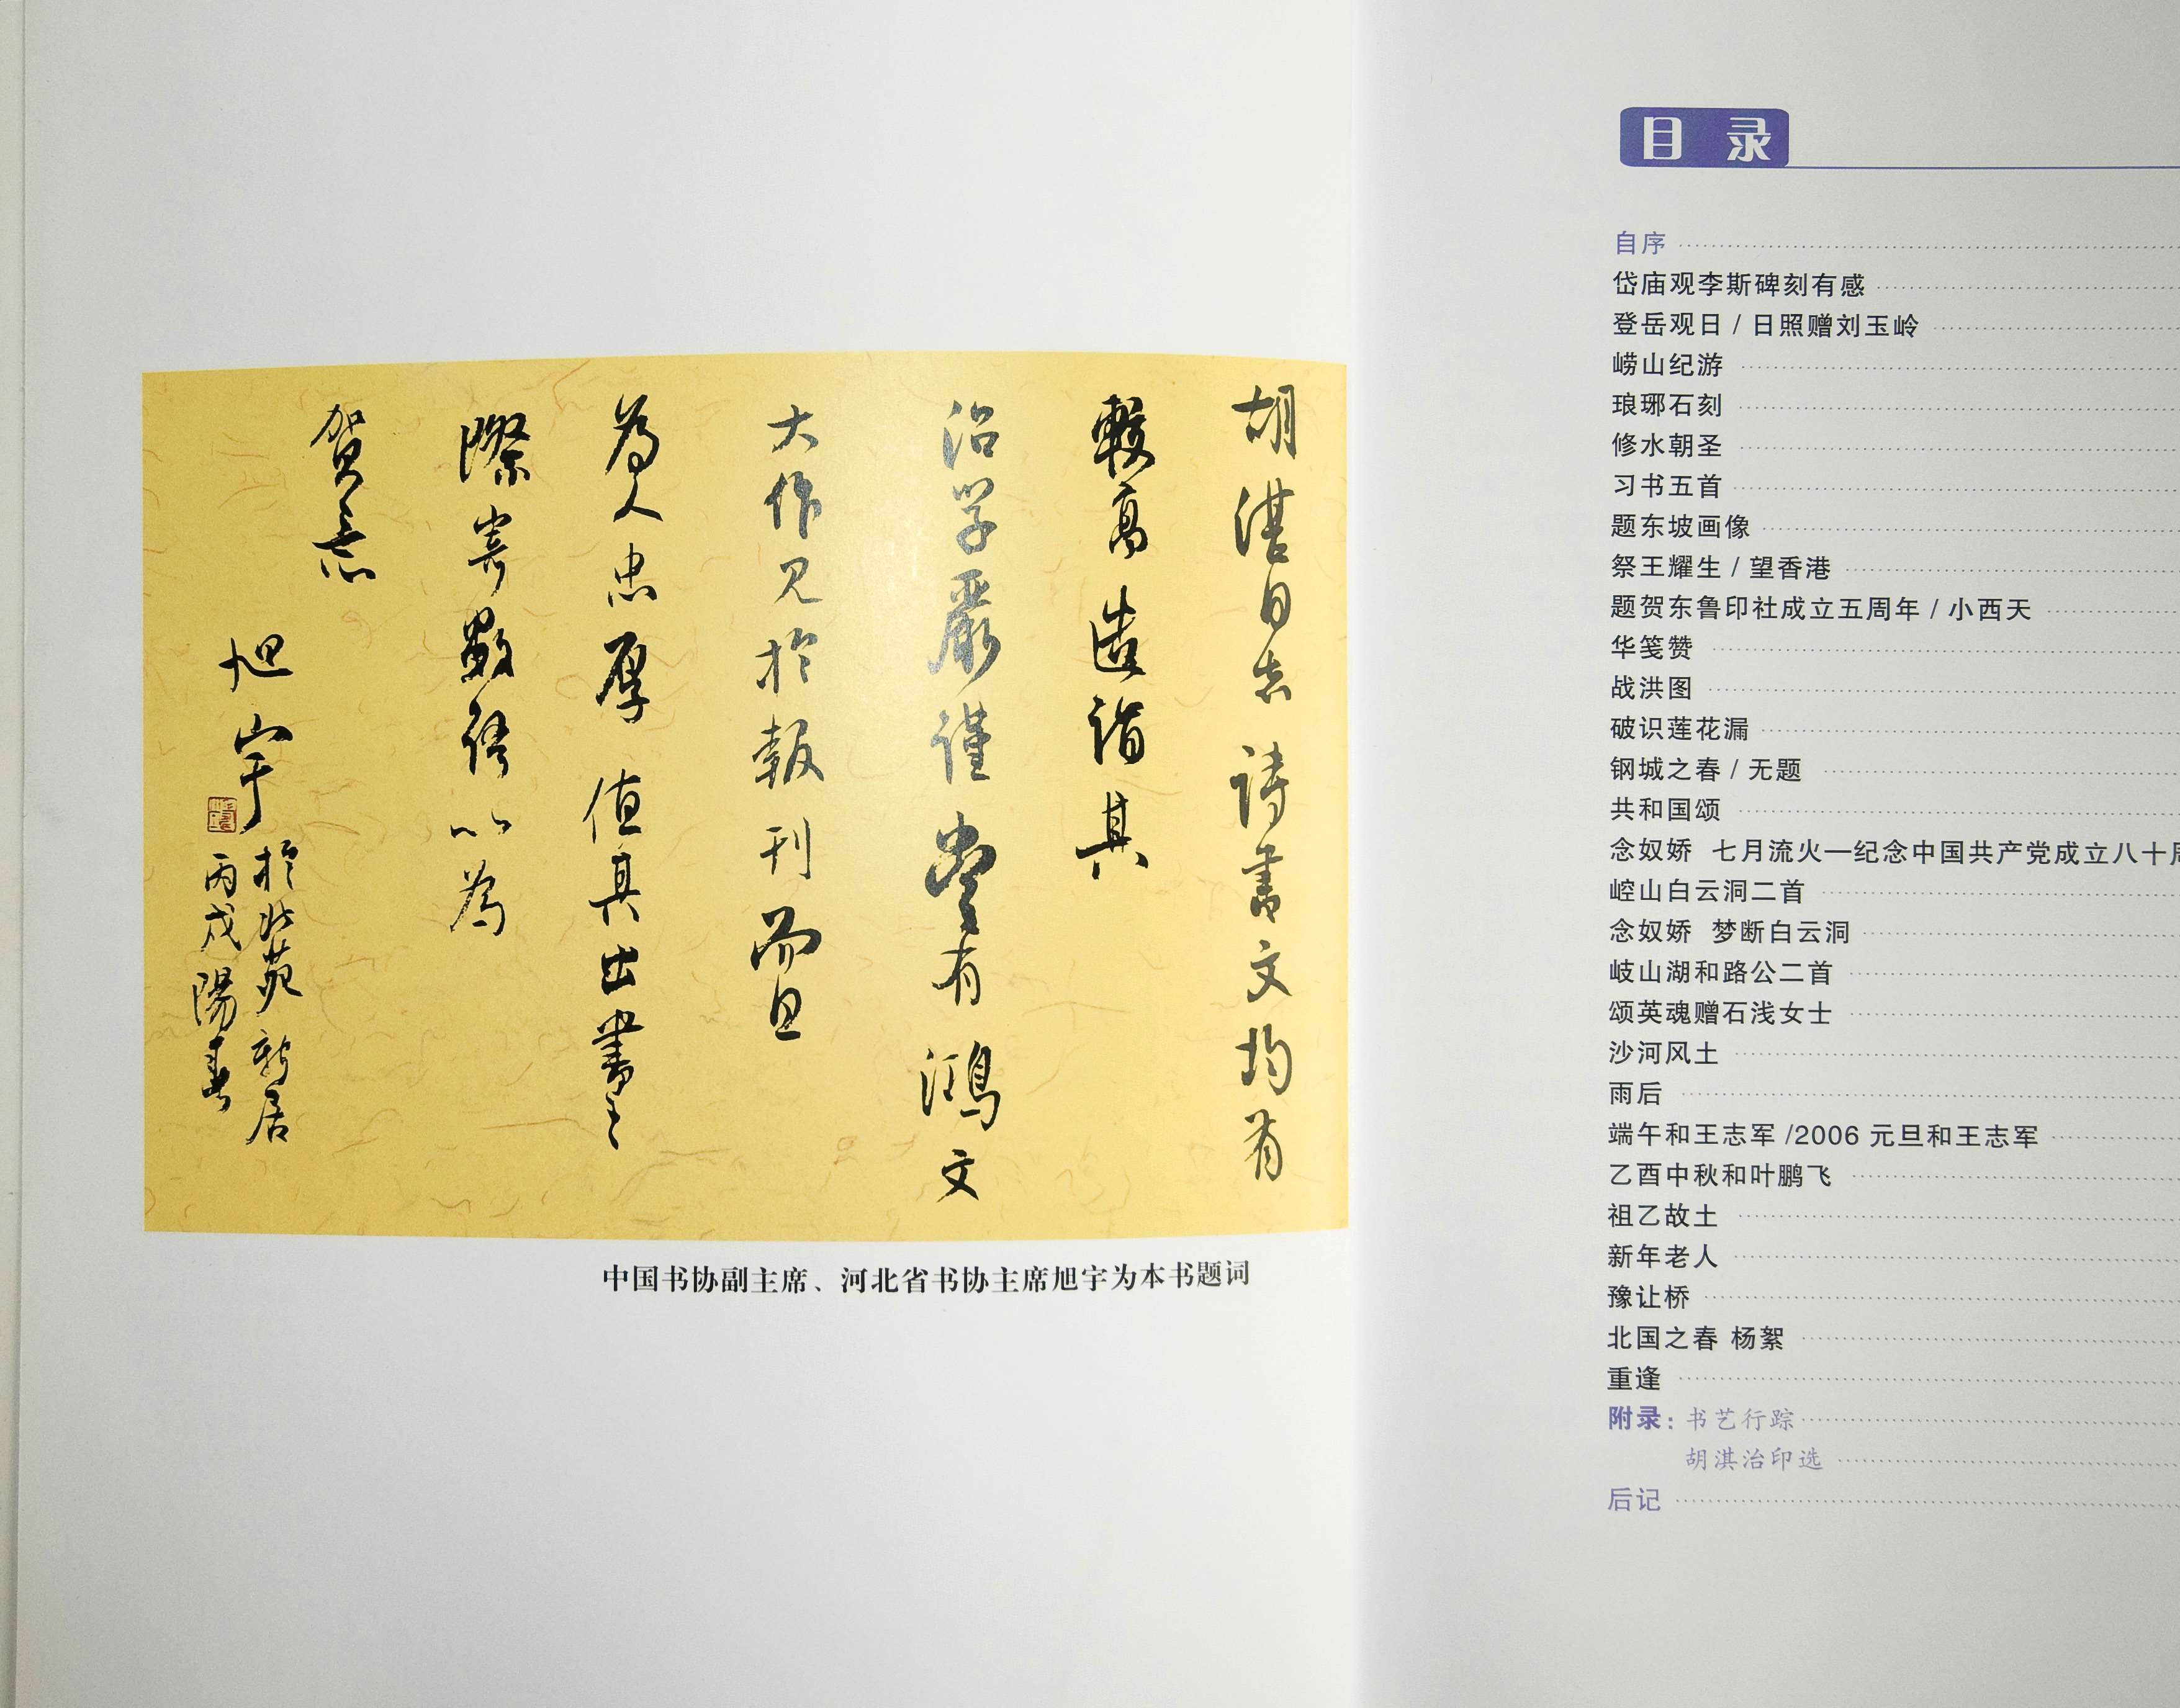 胡湛同志詩書文均有
較高造詣其
治学嚴謹常有鴻文
大作見於報刊而且
為人忠厚值其出書之
際寄數語以為
賀忘
旭宇
於北苑新居
丙戌陽春
中国书协副主席、河北省书协主席旭宇为本书题词
目 录
自序
岱庙观李斯碑刻有感
登岳观日 / 日照赠刘玉岭
崂山纪游
琅琊石刻
修水朝圣
习书五首
题东坡画像
祭王耀生 / 望香港
题贺东鲁印社成立五周年 / 小西天
华笺赞
战洪图
破识莲花漏
钢城之春 / 无题
共和国颂
念奴娇 七月流火—纪念中国共产党成立八十周
崆山白云洞二首
念奴娇 梦断白云洞
岐山湖和路公二首
颂英魂赠石浅女士
沙河风土
雨后
端午和王志军 /2006 元旦和王志军
乙酉中秋和叶鹏飞
祖乙故土
新年老人
豫让桥
北国之春 杨絮
重逢
附录: 书艺行踪
胡淇治印选
后记